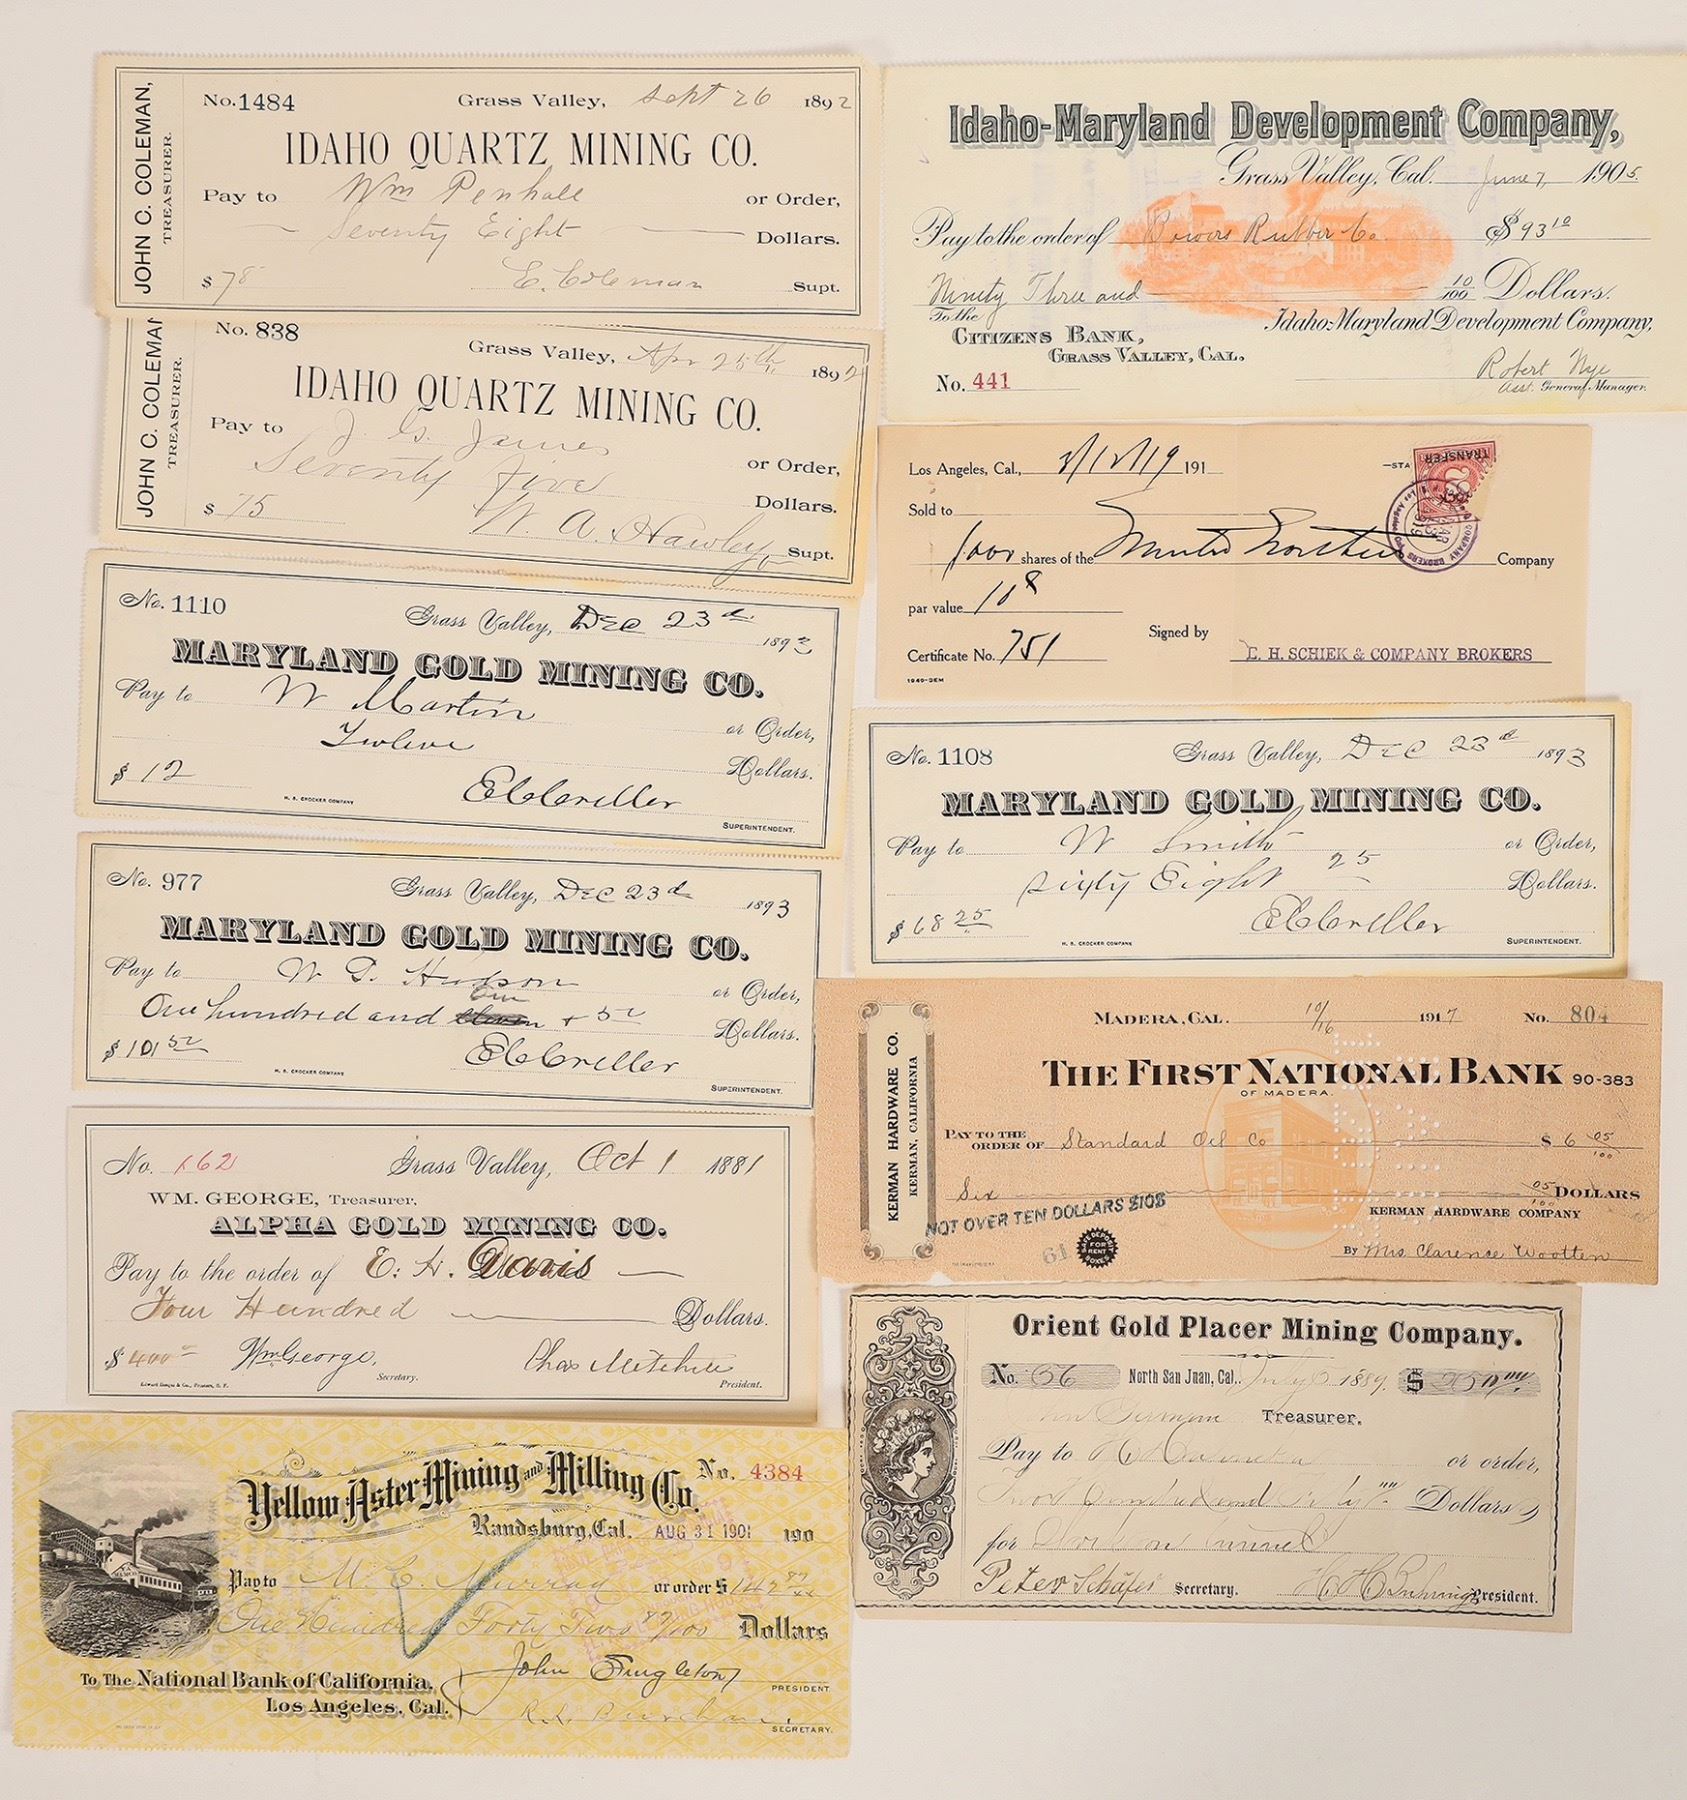 JOHN C. COLEMAN,
TREASURER.
No. 1484 Grass Valley, Sept 26 1892
IDAHO QUARTZ MINING CO.
Pay to Wm Penhall or Order,
Seventy Eight Dollars.
$78 E. Coleman Supt.
JOHN C. COLEMAN
TREASURER.
No. 838
Grass Valley, Apr 25th 1892
IDAHO QUARTZ MINING CO.
Pay to J. G. James or Order,
Seventy Five Dollars.
$75 W. A. Hawley Supt.
No. 1110 Grass Valley, Dec 23d 1893
MARYLAND GOLD MINING CO.
Pay to W Martin or Order,
Twelve Dollars.
$12
H. S. CROCKER COMPANY
SUPERINTENDENT.
No. 977 Grass Valley, Dec 23d 1893
MARYLAND GOLD MINING CO.
Pay to W D. Hudson or Order,
One
One hundred and eleven + 52 Dollars.
$101 52
H. S. CROCKER COMPANY
SUPERINTENDENT.
No. 162 Grass Valley, Oct 1 1881
WM. GEORGE, Treasurer,
ALPHA GOLD MINING CO.
Pay to the order of E. H. Davis
Four Hundred Dollars.
$400 Wm George, Secretary. Chas Mitchell President.
Yellow Aster Mining and Milling Co. No. 4384
Randsburg, Cal. AUG 31 1901 190
Pay to M. E. Murray or order $142 87/100
One Hundred Forty Two 87/100 Dollars
To The National Bank of California,
Los Angeles, Cal.
John Singleton
PRESIDENT
SECRETARY.
Idaho-Maryland Development Company,
Grass Valley, Cal. June 7, 1905
Pay to the order of Bowers Rubber Co. $93 10
Ninety Three and 10/100 Dollars.
To the
CITIZENS BANK,
GRASS VALLEY, CAL.
Idaho-Maryland Development Company,
No. 441
Robert Nye
Asst. General Manager.
Los Angeles, Cal., 3/12/19 191
—STA
TRANSFER
Sold to
1000 shares of the Company
par value 10¢
Certificate No. 751
Signed by
E. H. SCHIEK & COMPANY BROKERS
1949-DEM
No. 1108 Grass Valley, Dec 23d 1893
MARYLAND GOLD MINING CO.
Pay to W Smith or Order,
Sixty Eight 25 Dollars.
$68 25
H. S. CROCKER COMPANY
SUPERINTENDENT.
KERMAN HARDWARE CO.
KERMAN, CALIFORNIA
MADERA, CAL. 10/16 1917 No. 804
THE FIRST NATIONAL BANK 90-383
OF MADERA.
PAY TO THE
ORDER OF Standard Oil Co $6 05/100
Six 05/100 DOLLARS
NOT OVER TEN DOLLARS $10$
KERMAN HARDWARE COMPANY
61
By Mrs Clarence Wootten
Orient Gold Placer Mining Company.
No. 36 North San Juan, Cal., July 1889. $
Treasurer.
Pay to or order,
Dollars,
for
Peter Schäfer Secretary. President.